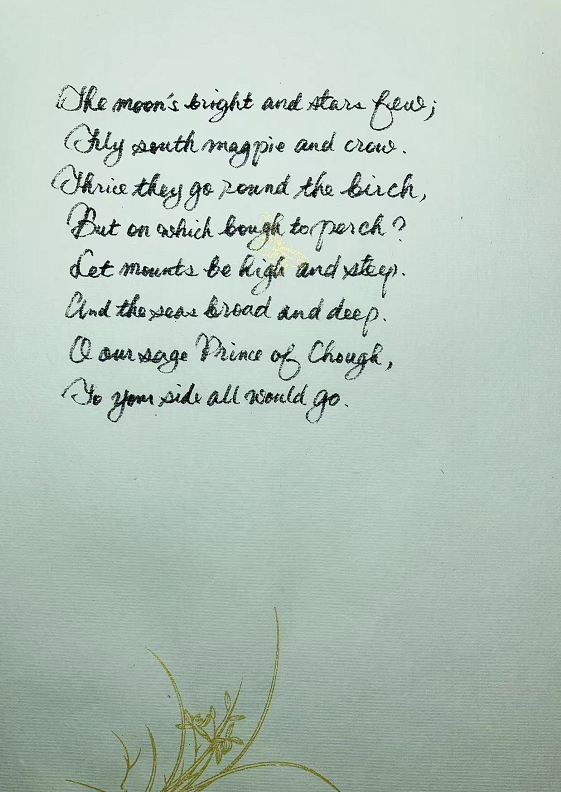 The moon's bright and stars few;
Fly south magpie and crow.
Thrice they go round the birch,
But on which bough to perch?
Let mounts be high and steep.
And the seas broad and deep.
O our sage Prince of Chough,
To your side all would go.